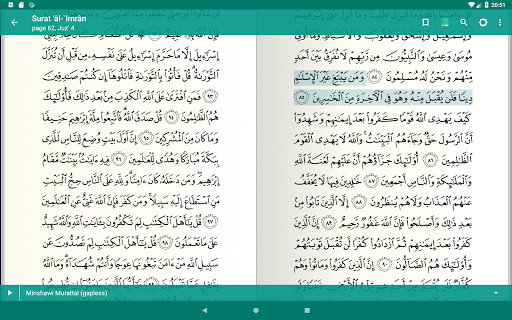 Surat 'āl-'Imrān
page 62, Juz' 4
20:51
وَإِسْمَٰعِيلَ وَإِسْحَٰقَ وَيَعْقُوبَ وَٱلْأَسْبَاطِ وَمَآ أُوتِىَ
مُوسَىٰ وَعِيسَىٰ وَٱلنَّبِيُّونَ مِن رَّبِّهِمْ لَا نُفَرِّقُ بَيْنَ أَحَدٍ
مِّنْهُمْ وَنَحْنُ لَهُۥ مُسْلِمُونَ ٨٤ وَمَن يَبْتَغِ غَيْرَ ٱلْإِسْلَٰمِ
دِينًا فَلَن يُقْبَلَ مِنْهُ وَهُوَ فِى ٱلْءَاخِرَةِ مِنَ ٱلْخَٰسِرِينَ ٨٥
كَيْفَ يَهْدِى ٱللَّهُ قَوْمًا كَفَرُوا۟ بَعْدَ إِيمَٰنِهِمْ وَشَهِدُوٓا۟
أَنَّ ٱلرَّسُولَ حَقٌّ وَجَآءَهُمُ ٱلْبَيِّنَٰتُ وَٱللَّهُ لَا يَهْدِى ٱلْقَوْمَ
ٱلظَّٰلِمِينَ ٨٦ أُو۟لَٰٓئِكَ جَزَآؤُهُمْ أَنَّ عَلَيْهِمْ لَعْنَةَ ٱللَّهِ
وَٱلْمَلَٰٓئِكَةِ وَٱلنَّاسِ أَجْمَعِينَ ٨٧ خَٰلِدِينَ فِيهَا لَا يُخَفَّفُ
عَنْهُمُ ٱلْعَذَابُ وَلَا هُمْ يُنظَرُونَ ٨٨ إِلَّا ٱلَّذِينَ تَابُوا۟ مِنۢ
بَعْدِ ذَٰلِكَ وَأَصْلَحُوا۟ فَإِنَّ ٱللَّهَ غَفُورٌ رَّحِيمٌ ٨٩ إِنَّ ٱلَّذِينَ
كَفَرُوا۟ بَعْدَ إِيمَٰنِهِمْ ثُمَّ ٱزْدَادُوا۟ كُفْرًا لَّن تُقْبَلَ تَوْبَتُهُمْ
وَأُو۟لَٰٓئِكَ هُمُ ٱلضَّآلُّونَ ٩٠ إِنَّ ٱلَّذِينَ كَفَرُوا۟ وَمَاتُوا۟ وَهُمْ
إِسْرَٰٓءِيلَ إِلَّا مَا حَرَّمَ إِسْرَٰٓءِيلُ عَلَىٰ نَفْسِهِۦ مِن قَبْلِ أَن تُنَزَّلَ
ٱلتَّوْرَىٰةُ قُلْ فَأْتُوا۟ بِٱلتَّوْرَىٰةِ فَٱتْلُوهَآ إِن كُنتُمْ صَٰدِقِينَ
٩٣ فَمَنِ ٱفْتَرَىٰ عَلَى ٱللَّهِ ٱلْكَذِبَ مِنۢ بَعْدِ ذَٰلِكَ فَأُو۟لَٰٓئِكَ
هُمُ ٱلظَّٰلِمُونَ ٩٤ قُلْ صَدَقَ ٱللَّهُ فَٱتَّبِعُوا۟ مِلَّةَ إِبْرَٰهِيمَ حَنِيفًا
وَمَا كَانَ مِنَ ٱلْمُشْرِكِينَ ٩٥ إِنَّ أَوَّلَ بَيْتٍ وُضِعَ لِلنَّاسِ لَلَّذِى
بِبَكَّةَ مُبَارَكًا وَهُدًى لِّلْعَٰلَمِينَ ٩٦ فِيهِ ءَايَٰتٌۢ بَيِّنَٰتٌ مَّقَامُ
إِبْرَٰهِيمَ وَمَن دَخَلَهُۥ كَانَ ءَامِنًا وَلِلَّهِ عَلَى ٱلنَّاسِ حِجُّ ٱلْبَيْتِ
مَنِ ٱسْتَطَاعَ إِلَيْهِ سَبِيلًا وَمَن كَفَرَ فَإِنَّ ٱللَّهَ غَنِىٌّ عَنِ ٱلْعَٰلَمِينَ
٩٧ قُلْ يَٰٓأَهْلَ ٱلْكِتَٰبِ لِمَ تَكْفُرُونَ بِـَٔايَٰتِ ٱللَّهِ وَٱللَّهُ شَهِيدٌ
عَلَىٰ مَا تَعْمَلُونَ ٩٨ قُلْ يَٰٓأَهْلَ ٱلْكِتَٰبِ لِمَ تَصُدُّونَ عَن
سَبِيلِ ٱللَّهِ مَنْ ءَامَنَ تَبْغُونَهَا عِوَجًا وَأَنتُمْ شُهَدَآءُ وَمَا ٱللَّهُ
Minshawi Murattal (gapless)